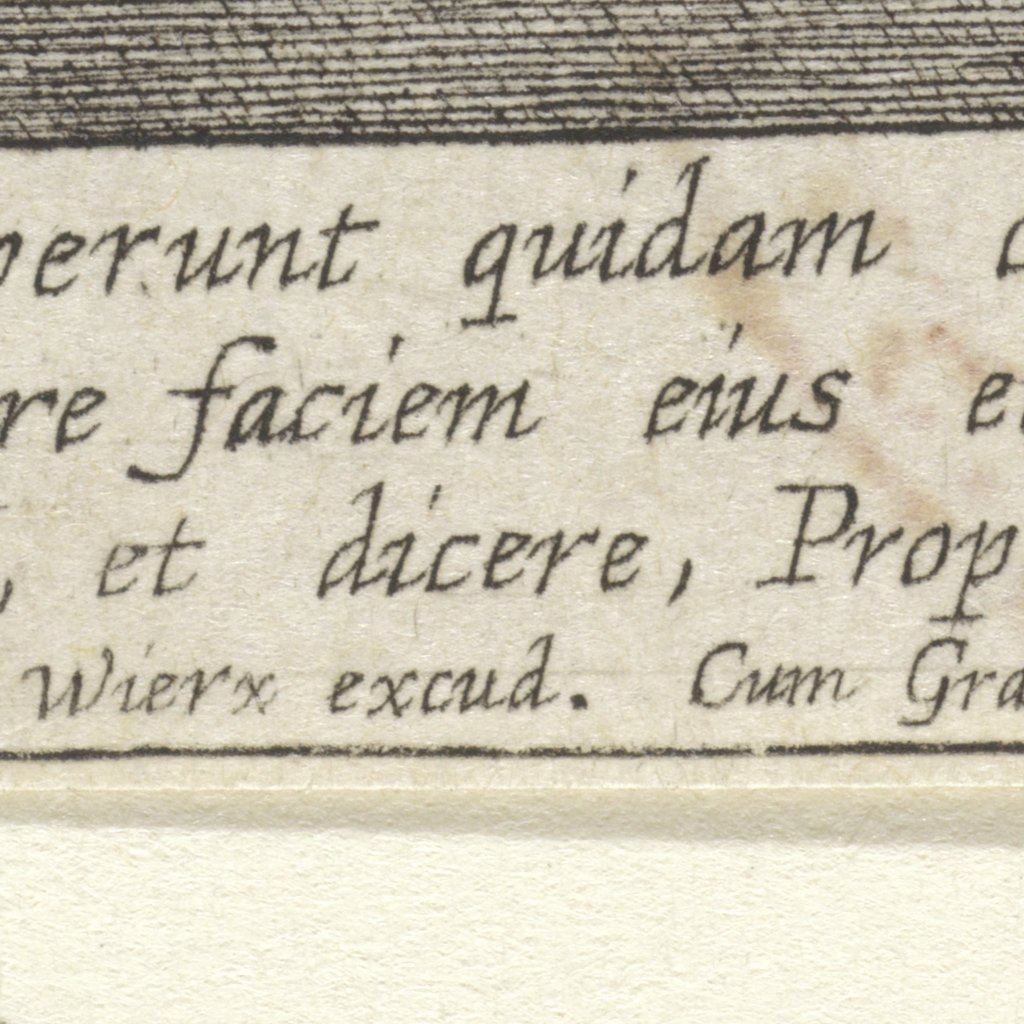 perunt quidam c
re faciem eius et
, et dicere, Prop
Wierx excud. Cum Gra